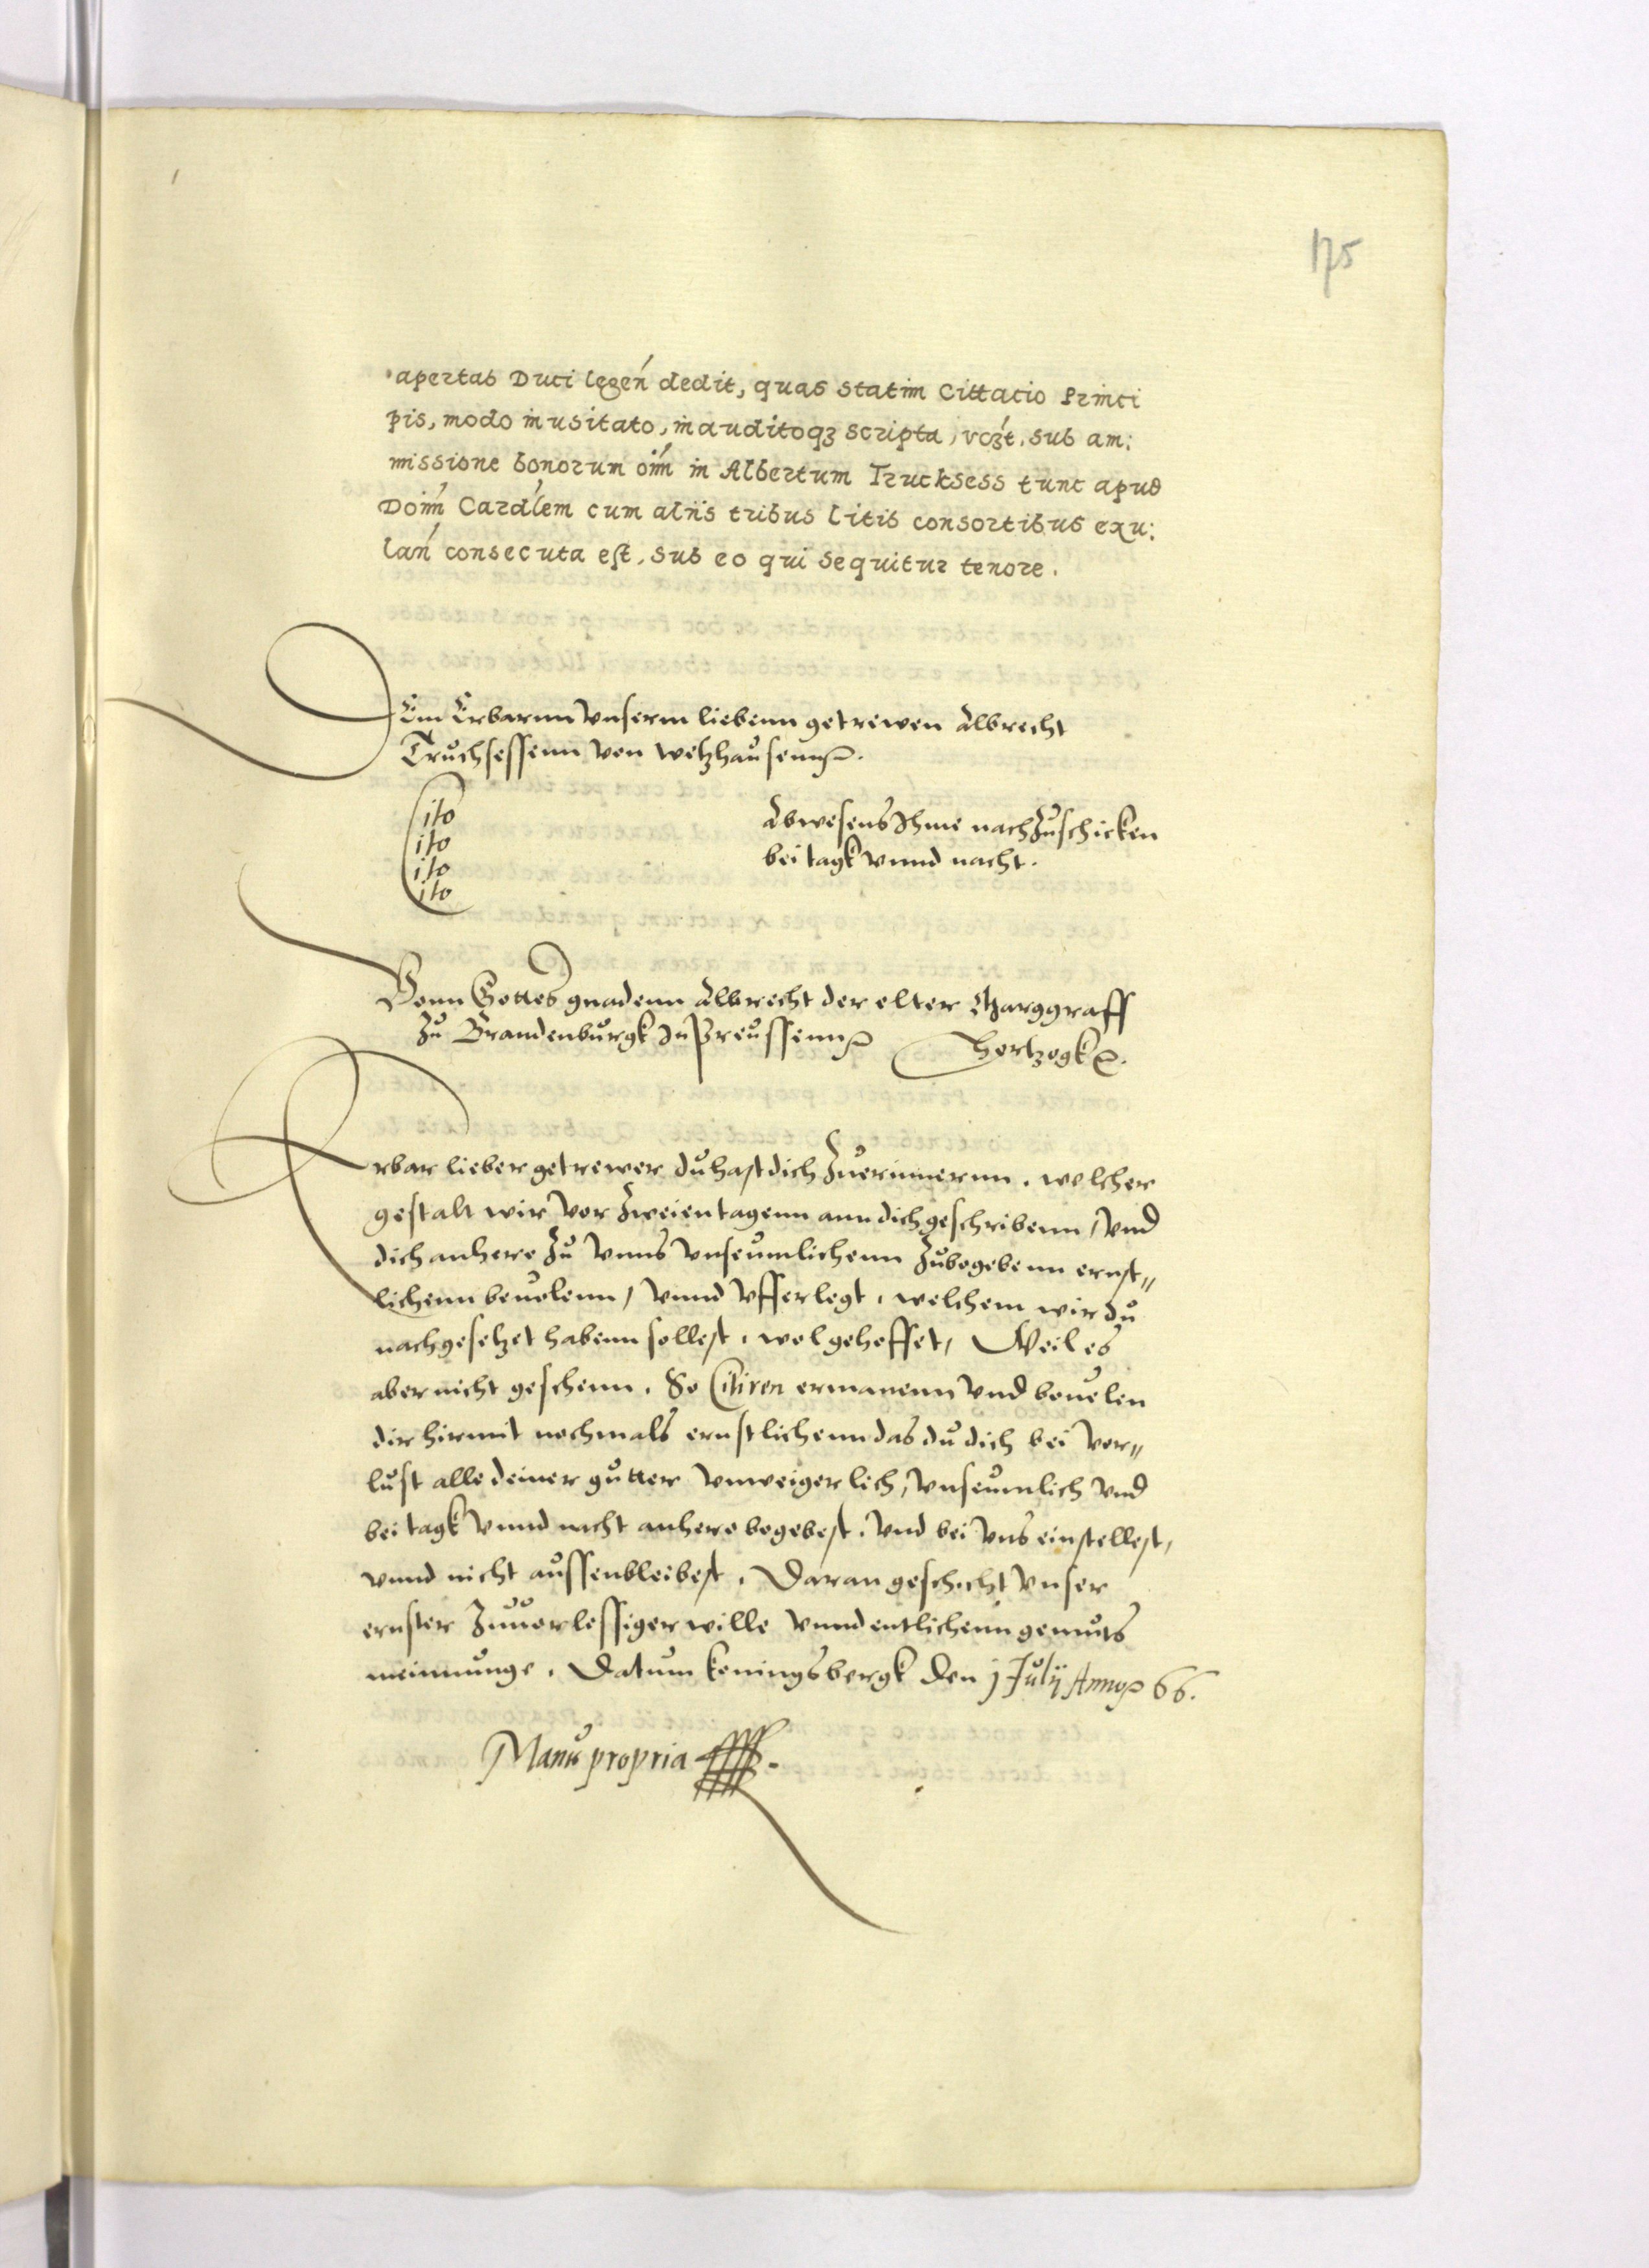 175
apertas Duci legen̄ dedit, quas statim Cittacio Princi
pis, modo inusitato, inauditoqȝ scripta, vcȝt. sub am:
missione bonorun oīm in Albertum Trucksess tunc apud
Doīm Cardlem cum aliis tribus litis consortibus exu:
lan̄ consecuta est, sub eo qui sequitur tenore.
Dem Erbarnn Vnserm liebenn getrewen Albrecht
Truchsessenn von wetzhausenn
Cito
Cito
Cito
Cito
Abwesens Ihme nach Zuschicken
bei tagk vnnd nacht.
Vonn Gottes gnadenn Albrecht der elter Marggraff
Zu Brandenburgk In Preussenn Hertzogk
Erbar lieber getrewer du hast dich Zuerinnernn. welcher
gestalt wir vor Zweien tagenn ann dich geschribenn, Vnd
dich anhero Zu Vnns Vnseumlichenn Zubegebenn ernst⸗
lichenn beuolenn, Vnnd Vfferlegt, welchem wir du
nachgesetzet habenn sollest, wol gehoffet, Weil es
aber nicht geschenn. So Citiren ermanenn Vnd beuelen
dir hirmit nochmals ernstlichenn das du dich bei Ver⸗
lust alle deiner gutter Vnweigerlich, Vnseumlich Vnd
bei tagk Vnnd nacht anhero begebest. Vnd bei Vns einstellest,
vnnd nicht aussenbleibest. Daran geschicht Vnser
ernster Zuuorlessiger wille vnnd entlichenn gemuts
meinnunge. Datum Koningsbergk den j July Anno 66.
Manu propria